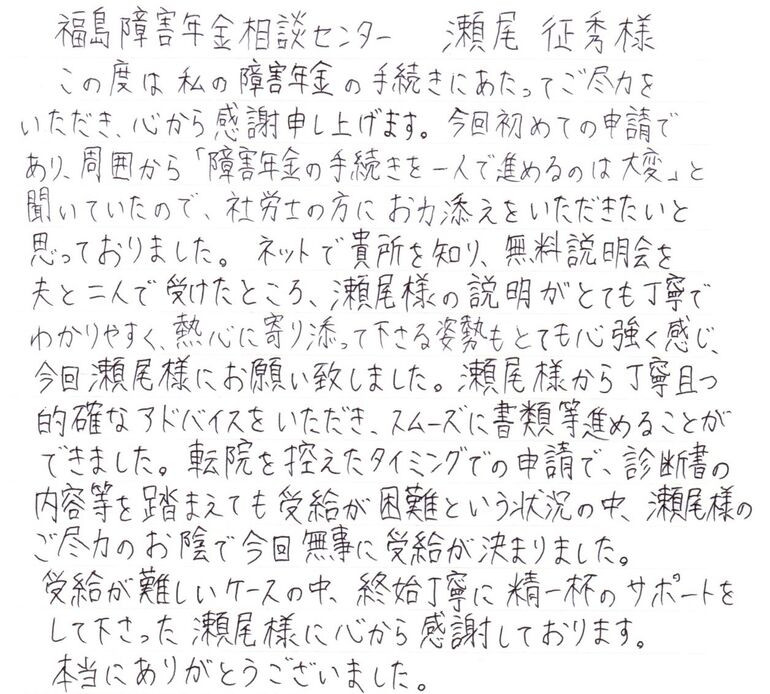 福島障害年金相談センター 瀬尾 征秀様
この度は私の障害年金の手続きにあたってご尽力を
いただき、心から感謝申し上げます。今回初めての申請で
あり、周囲から「障害年金の手続きを一人で進めるのは大変」と
聞いていたので、社労士の方にお力添えをいただきたいと
思っておりました。ネットで貴所を知り、無料説明会を
夫と二人で受けたところ、瀬尾様の説明がとても丁寧で
わかりやすく、熱心に寄り添って下さる姿勢もとても心強く感じ、
今回瀬尾様にお願い致しました。瀬尾様から丁寧且つ
的確なアドバイスをいただき、スムーズに書類等進めることが
できました。転院を控えたタイミングでの申請で、診断書の
内容等を踏まえても受給が困難という状況の中、瀬尾様の
ご尽力のお陰で今回無事に受給が決まりました。
受給が難しいケースの中、終始丁寧に精一杯のサポートを
して下さった瀬尾様に心から感謝しております。
本当にありがとうございました。